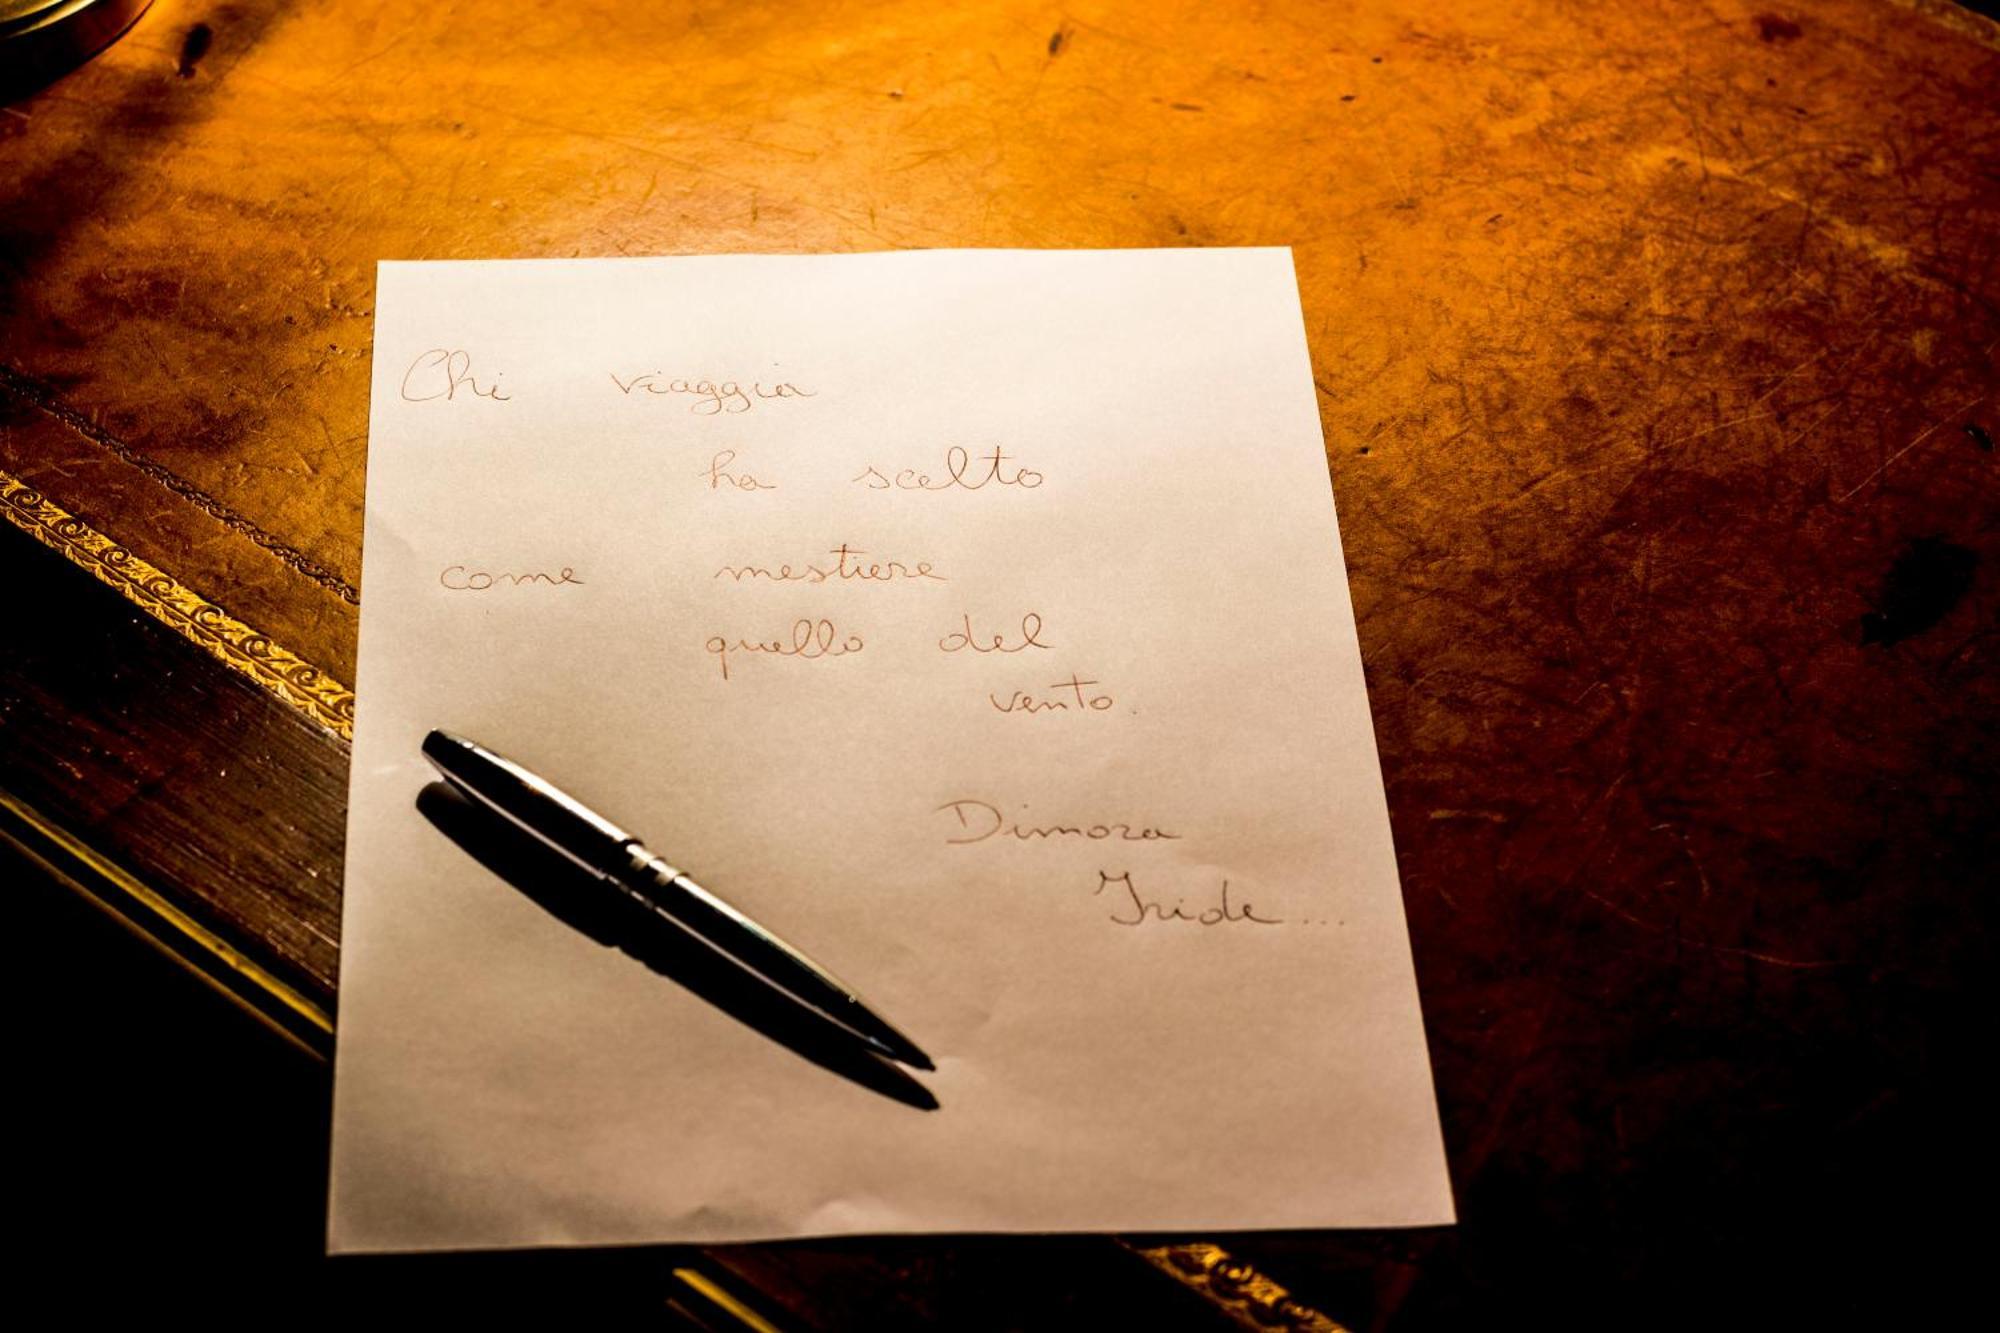 Chi viaggia
ha scelto
come mestiere
quello del
vento.
Dimora
Iride...